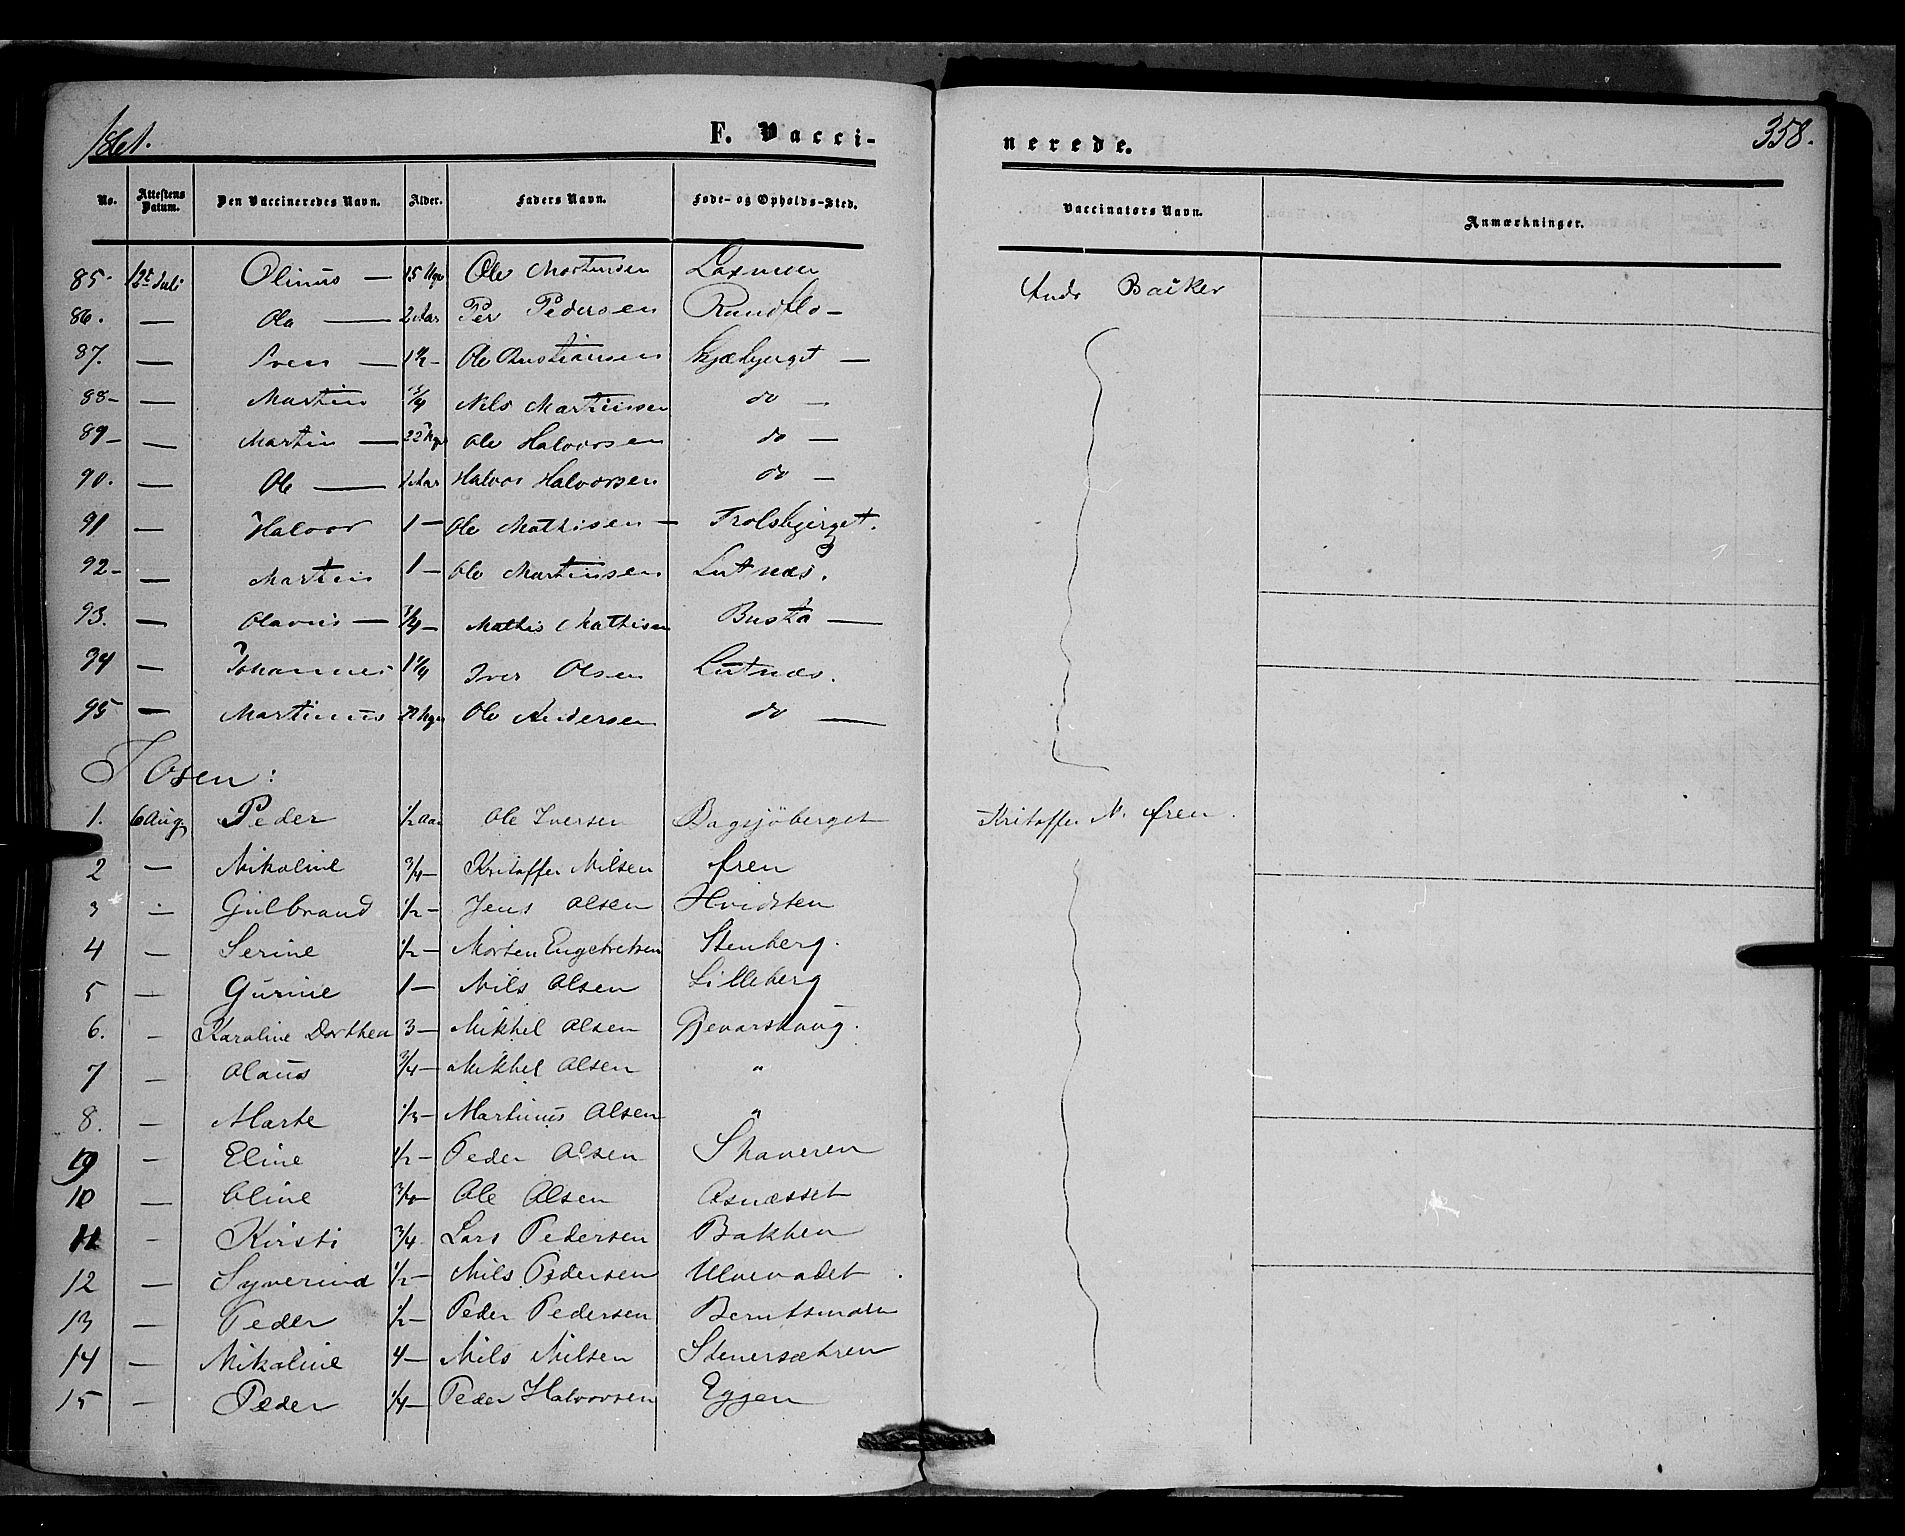 1861. F. Vacci- nerede. 358.
No. Attestens Datum. Den Vaccineredes Navn. Alder. Faders Navn. Føde- og Opholds-Sted. Vaccinatørs Navn. Anmærkninger.
85- 12te Juli Olinus — 15 Uger Ole Mortensen Ands Bakker
86. — Ola — 2 Aar Per Pedersen Rundflo —
87. — Sven — 1½ - Ole Christiansen Skjæbjerget —
88- — Martin Nils Martinsen do —
89- — Martin — 22 Uger Ole Halvorsen do —
90. — Ole — 1 Aar Halvor Halvorsen do —
91 — Halvor 1 — Ole Mathisen — Trolsbjerget.
92- — Martin 1 — Ole Martinsen Lutnæs.
93. — Olavus — 3/4 — Mathis Mathisen Busta —
94 — Johannes 1¼ Iver Olsen Lutnæs.
95 — Martinus Uger Ole Andersen do —
I Osen:
1. 6 Aug Peder ½ Aar Ole Iversen Bagsjöberget Kristoffer N. Øren.
2 — Nikoline 3/4 — Kristoffer Nilsen Øren
3 — Gulbrand ½ — Jens Olsen Hvidsten
4 — Serine ½ — Morten Engebretsen Stenberg.
5 — Gurine 1 — Nils Olsen Lilleberg
6. — Karoline Dorthea 3 — Mikkel Olsen
7 — Olaus 3/4 — Mikkel Olsen "
8. — Marte 1/3 — Martinus Olsen "
9 — Eline ½ — Peder Olsen Skaveren
10 — Oline Ole Olsen Osnæsset
11 — Kirsti 3/4 Lars Pedersen Bakken
12 — Syverine ½ — Nils Pedersen Ulvevadet.
13 — Peder ½ — Peder Pedersen Berntsmoen
14 — Nikoline 4 — Nils Nilsen Stenersætren
15 — Peder ¼ — Peder Halvorsen Eggen